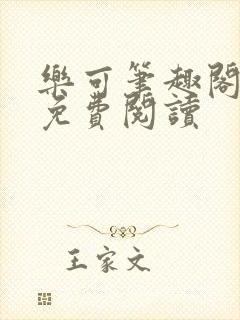 樂可筆趣閣
免費閱讀
王家文